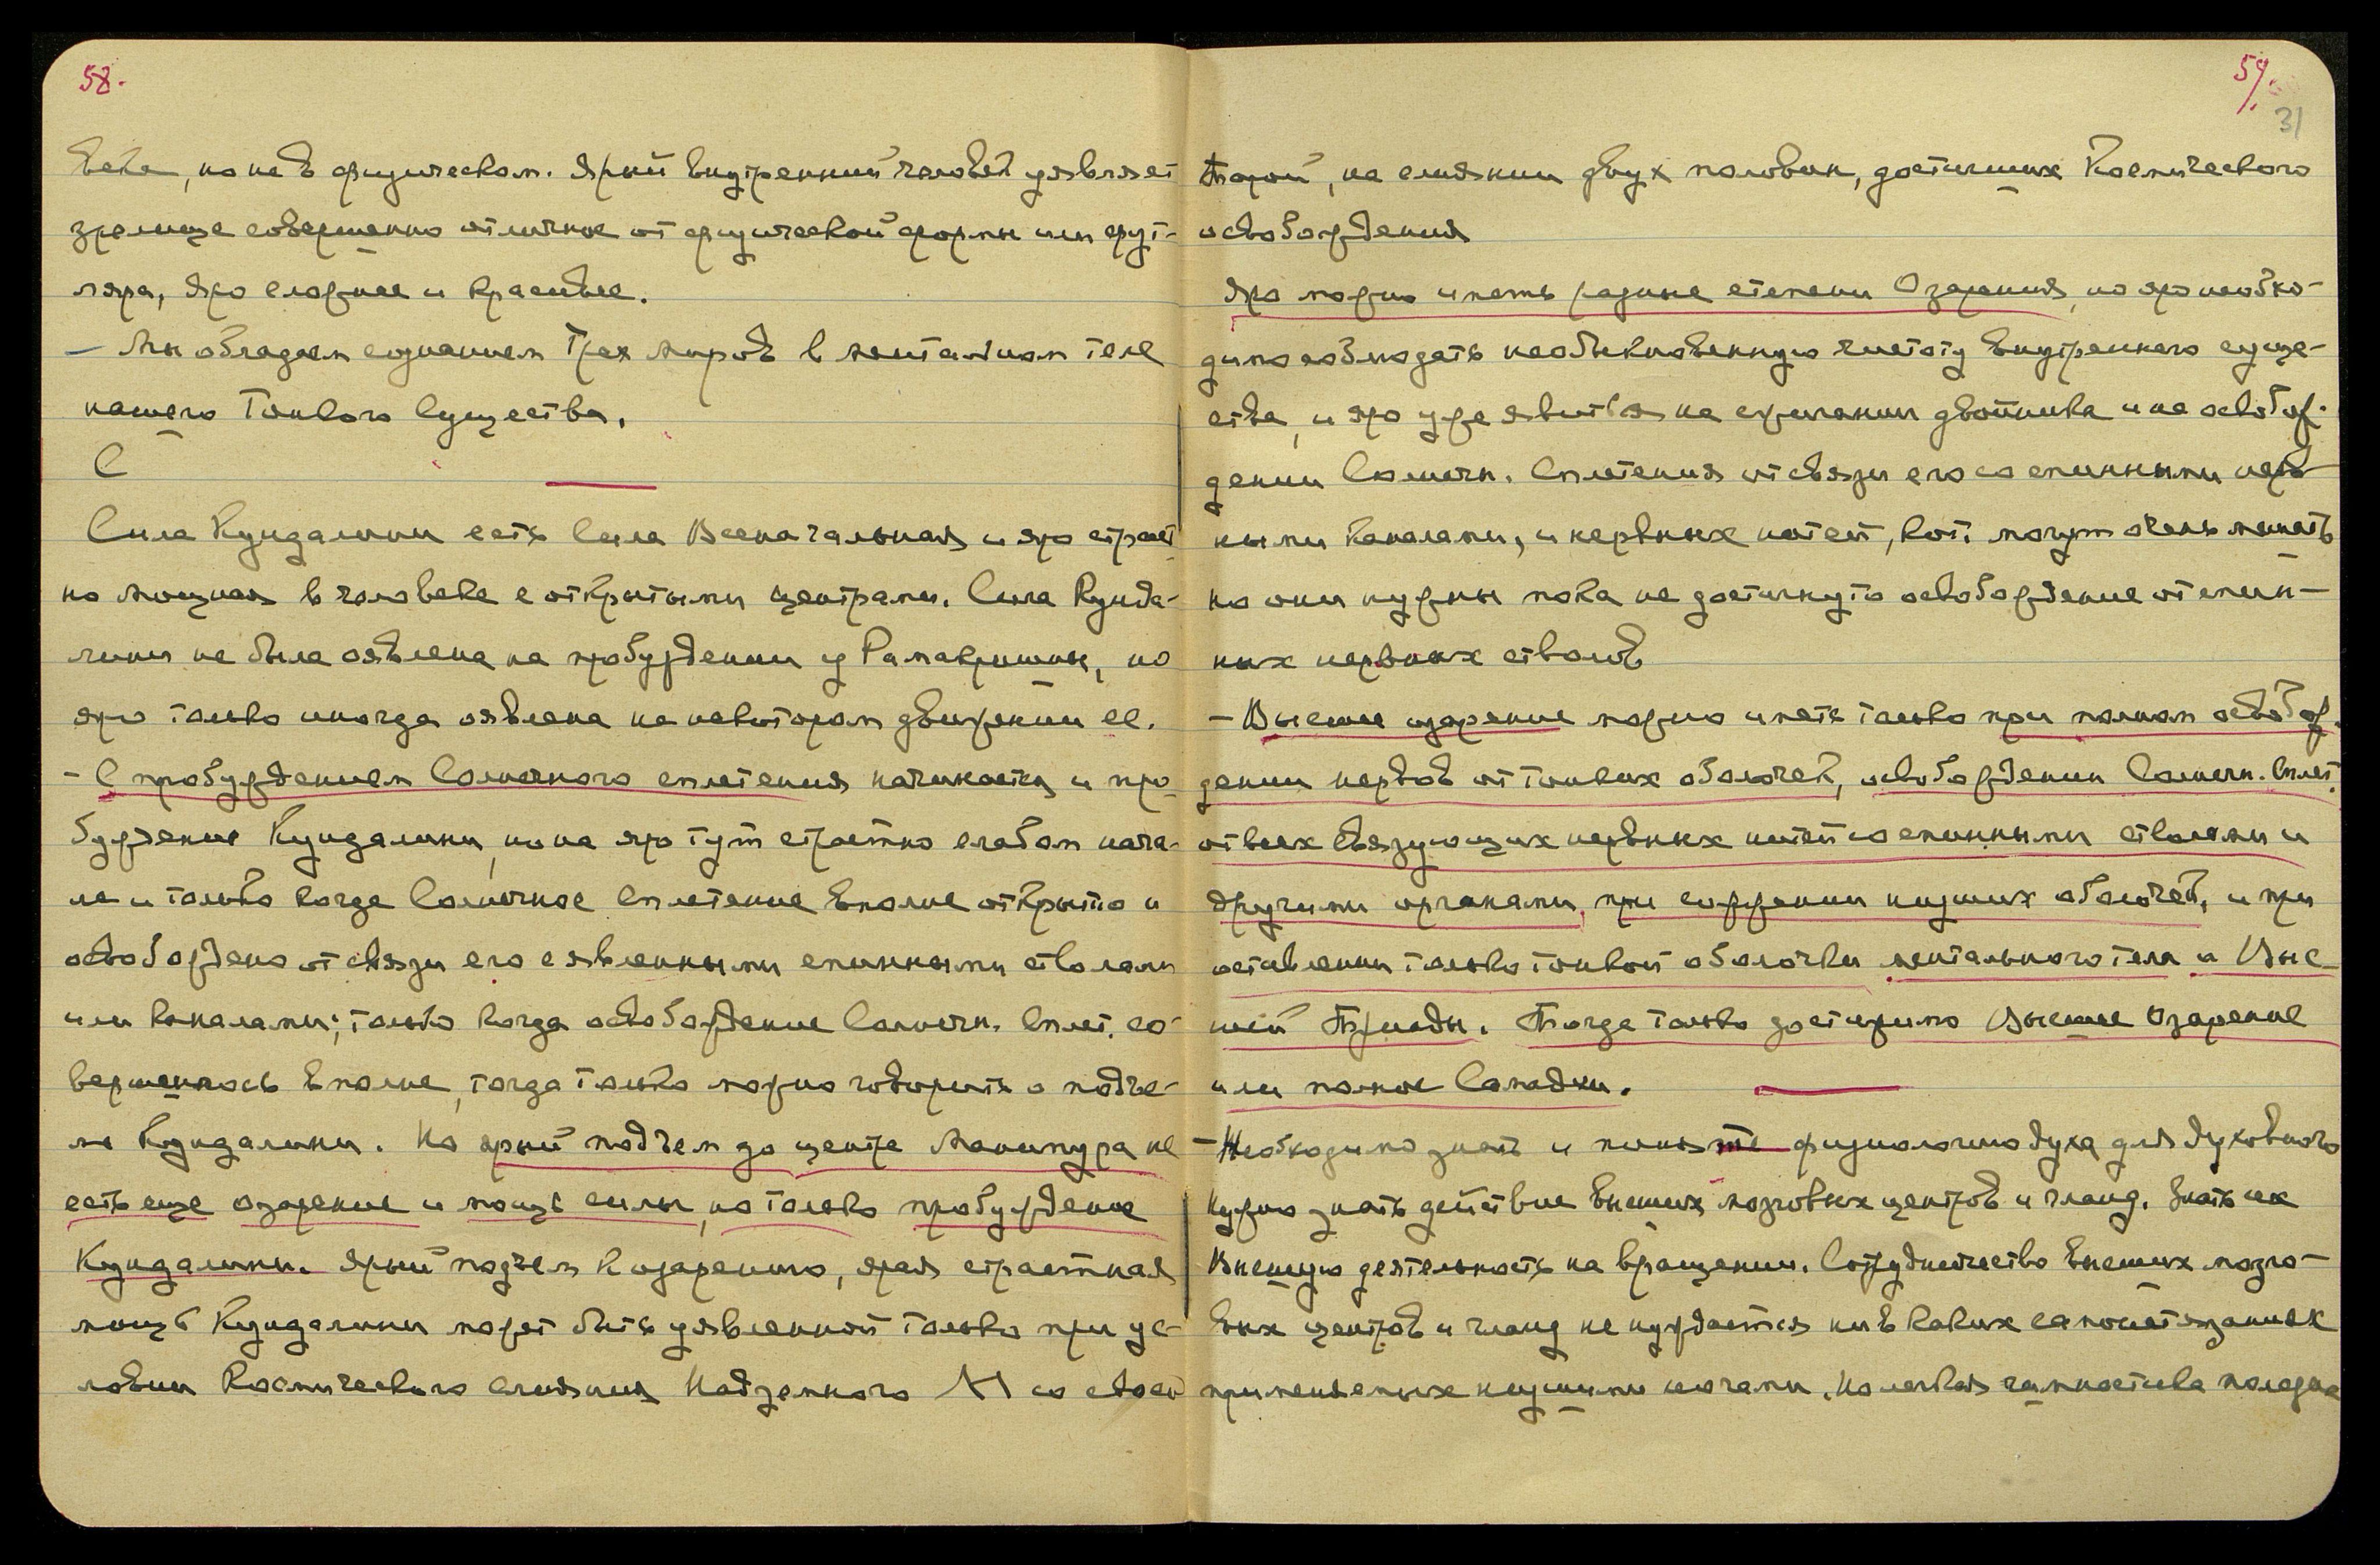 58.
века, но не в физическом. Ярый внутренний человек уявляет
зрелище совершенно отличное от физической формы или фут-
ляра, яро сложнее и красивее.
— Мы обладаем сознанием Трех миров в ментальном теле
нашего Тонкого Существа.
С
Сила Кундалини есть Сила Всеначальная и яро страст-
но мощная в человеке с открытыми центрами. Сила Кунда-
лини не была оявлена на пробуждении у Рамакришны, но
яро только иногда оявлена на некотором движении ее.
- С пробуждением Солнечного сплетения начинается и про-
буждение Кундалини, но на яро тут страстно слабом нача-
ле и только когда Солнечное Сплетение вполне открыто и
освобождено от связи его с явленными спинными стволами
или каналами; только когда освобождение Солнечн. Сплет. со-
вершилось вполне, тогда только можно говорить о подъе-
ме Кундалини. Но ярый подъем до центра Манипура не
есть еще озарение и мощь силы, но только пробуждение
Кундалини. Ярый подъем к озарению, ярая страстная
мощь Кундалини может быть уявленной только при ус-
ловии Космического слияния Надземного М со своей
59.
31
Тарой, на слиянии двух половин, достигших Космического
освобождения
Яро можно иметь разные степени Озарения, но яро необхо-
димо соблюдать необыкновенную чистоту внутреннего суще-
ства, и яро уже явиться на сжигании двойника и на освобож-
дении Солнечн. Сплетения от связи его со спинными нерв-
ными каналами, и нервных нитей, кот. могут очень мешать
но они нужны пока не достигнуто освобождение от спин-
ных нервных стволов
- Высшее озарение можно иметь только при полном освобож-
дении нервов от тонких оболочек, освобождении Солнечн. Сплет.
от всех связующих нервных нитей со спинными стволами и
другими органами, при сожжении низших оболочек, и при
оставлении только тонкой оболочки ментального тела и Выс-
шей Триады. Тогда только достижимо Высшее Озарение
или полное Самадхи.
- Необходимо знать и физиологию духа для духовного
Нужно знать действие высших мозговых центров и гланд. Знать их
Внешнюю деятельность на вращении. Сотрудничество высших мозго-
вых центров и гланд не нуждается ни в каких самоистязаниях
применяемых низшими йогами. Но легкая гимнастика полезна